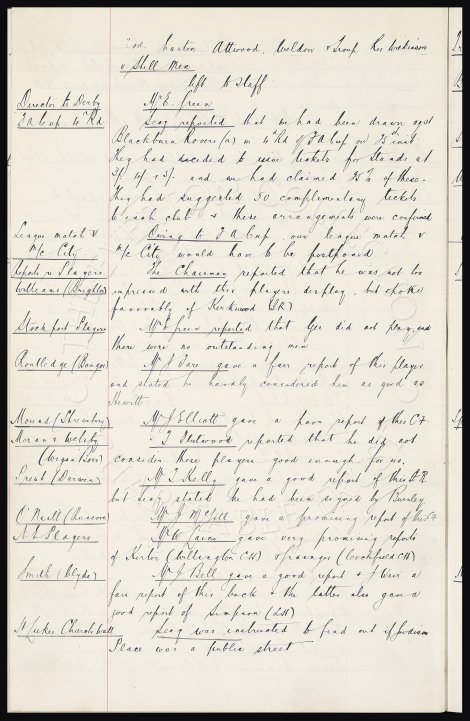 Easton Attwood, Weldon & Troup
& Still Men
left to staff
Director to Derby
Mr E. Green
F A Cup 4th Rd
Secy reported that we had been drawn agst
Blackburn Rovers (a) in 4th Rd of F A Cup on 25th inst
They had decided to issue tickets for Stands at
and we had claimed 25% of these.
They had suggested 50 complimentary tickets
to each club & these arrangements were confirmed
League match v
Owing to F A Cup, our league match v
M/c City
M/c City would have to be postponed
Reports re Players
The Chairman reported that he was not too
Williams (Brighton)
impressed with this players display but spoke
favourably of Kirkwood
Stockport Players
Mr Green reported that Gee did not play, and
there were no outstanding men
Routledge (Bangor)
Mr J Fare gave a fair report of this player
and stated he hardly considered him as good as
Hewitt
Mounds (Shrewsbury)
Mr J Elliott gave a poor report of this CF
Morans & Welsby
J Fleetwood reported that he did not
(Wigan Boro)
consider these players good enough for us.
Frost (Darwen)
Mr T Kelly gave a good report of this
but Secy stated he had been signed by Burnley
O'Neill (Runcorn)
Mr J McGill gave a promising report of this
N.E. Players
Mr W gave very promising reports
of Kirton (Willington CH) & (Cockfield CH)
Smith (Clyde)
Mr J Bell gave a good report & J Weir a
fair report of this back & the latter also gave a
good report of Simpson
St Lukes Church Wall
Secy was instructed to find out if Goodison
Place was a public street